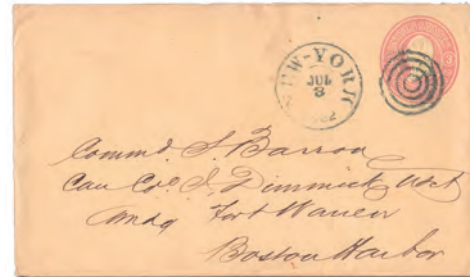 NEW-YORK
JUL
3
1862
Commd. S. Barron
Care Col. J. Dimmick USA
Comdg Fort Warren
Boston Harbor